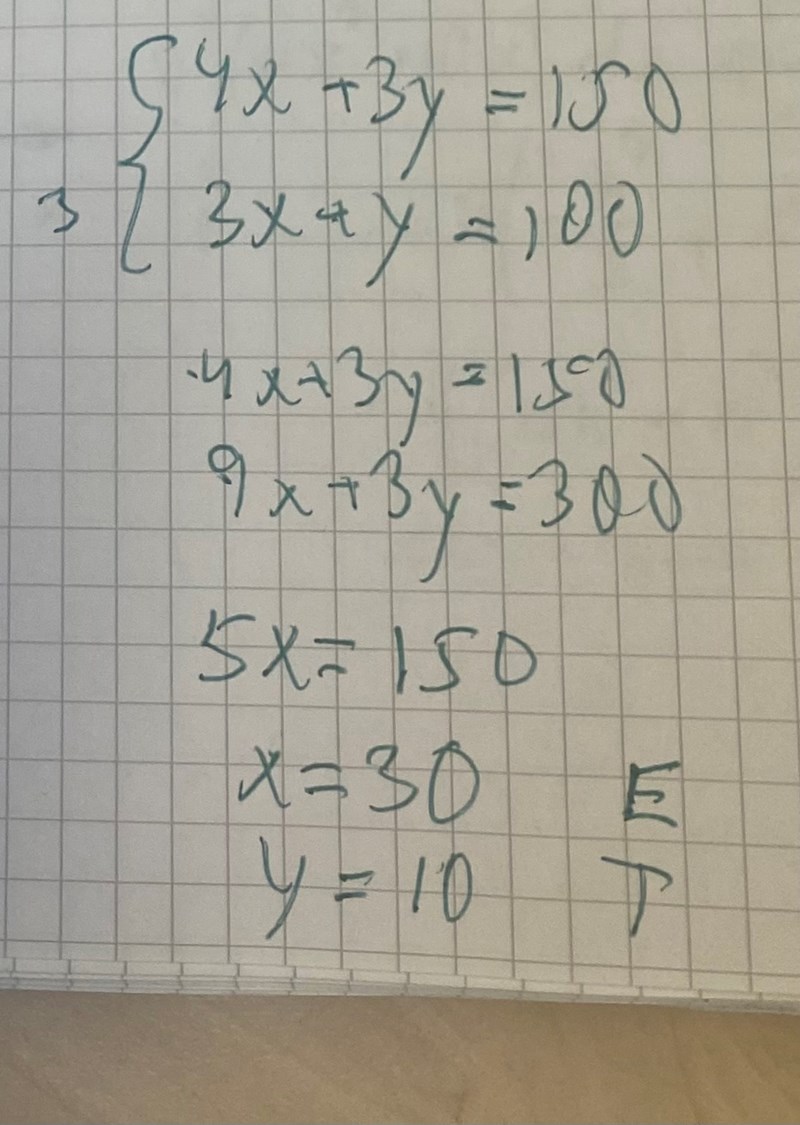 4x + 3y = 150
3 { 3x + y = 100
4x + 3y = 150
9x + 3y = 300
5x = 150
x = 30 E
y = 10 T